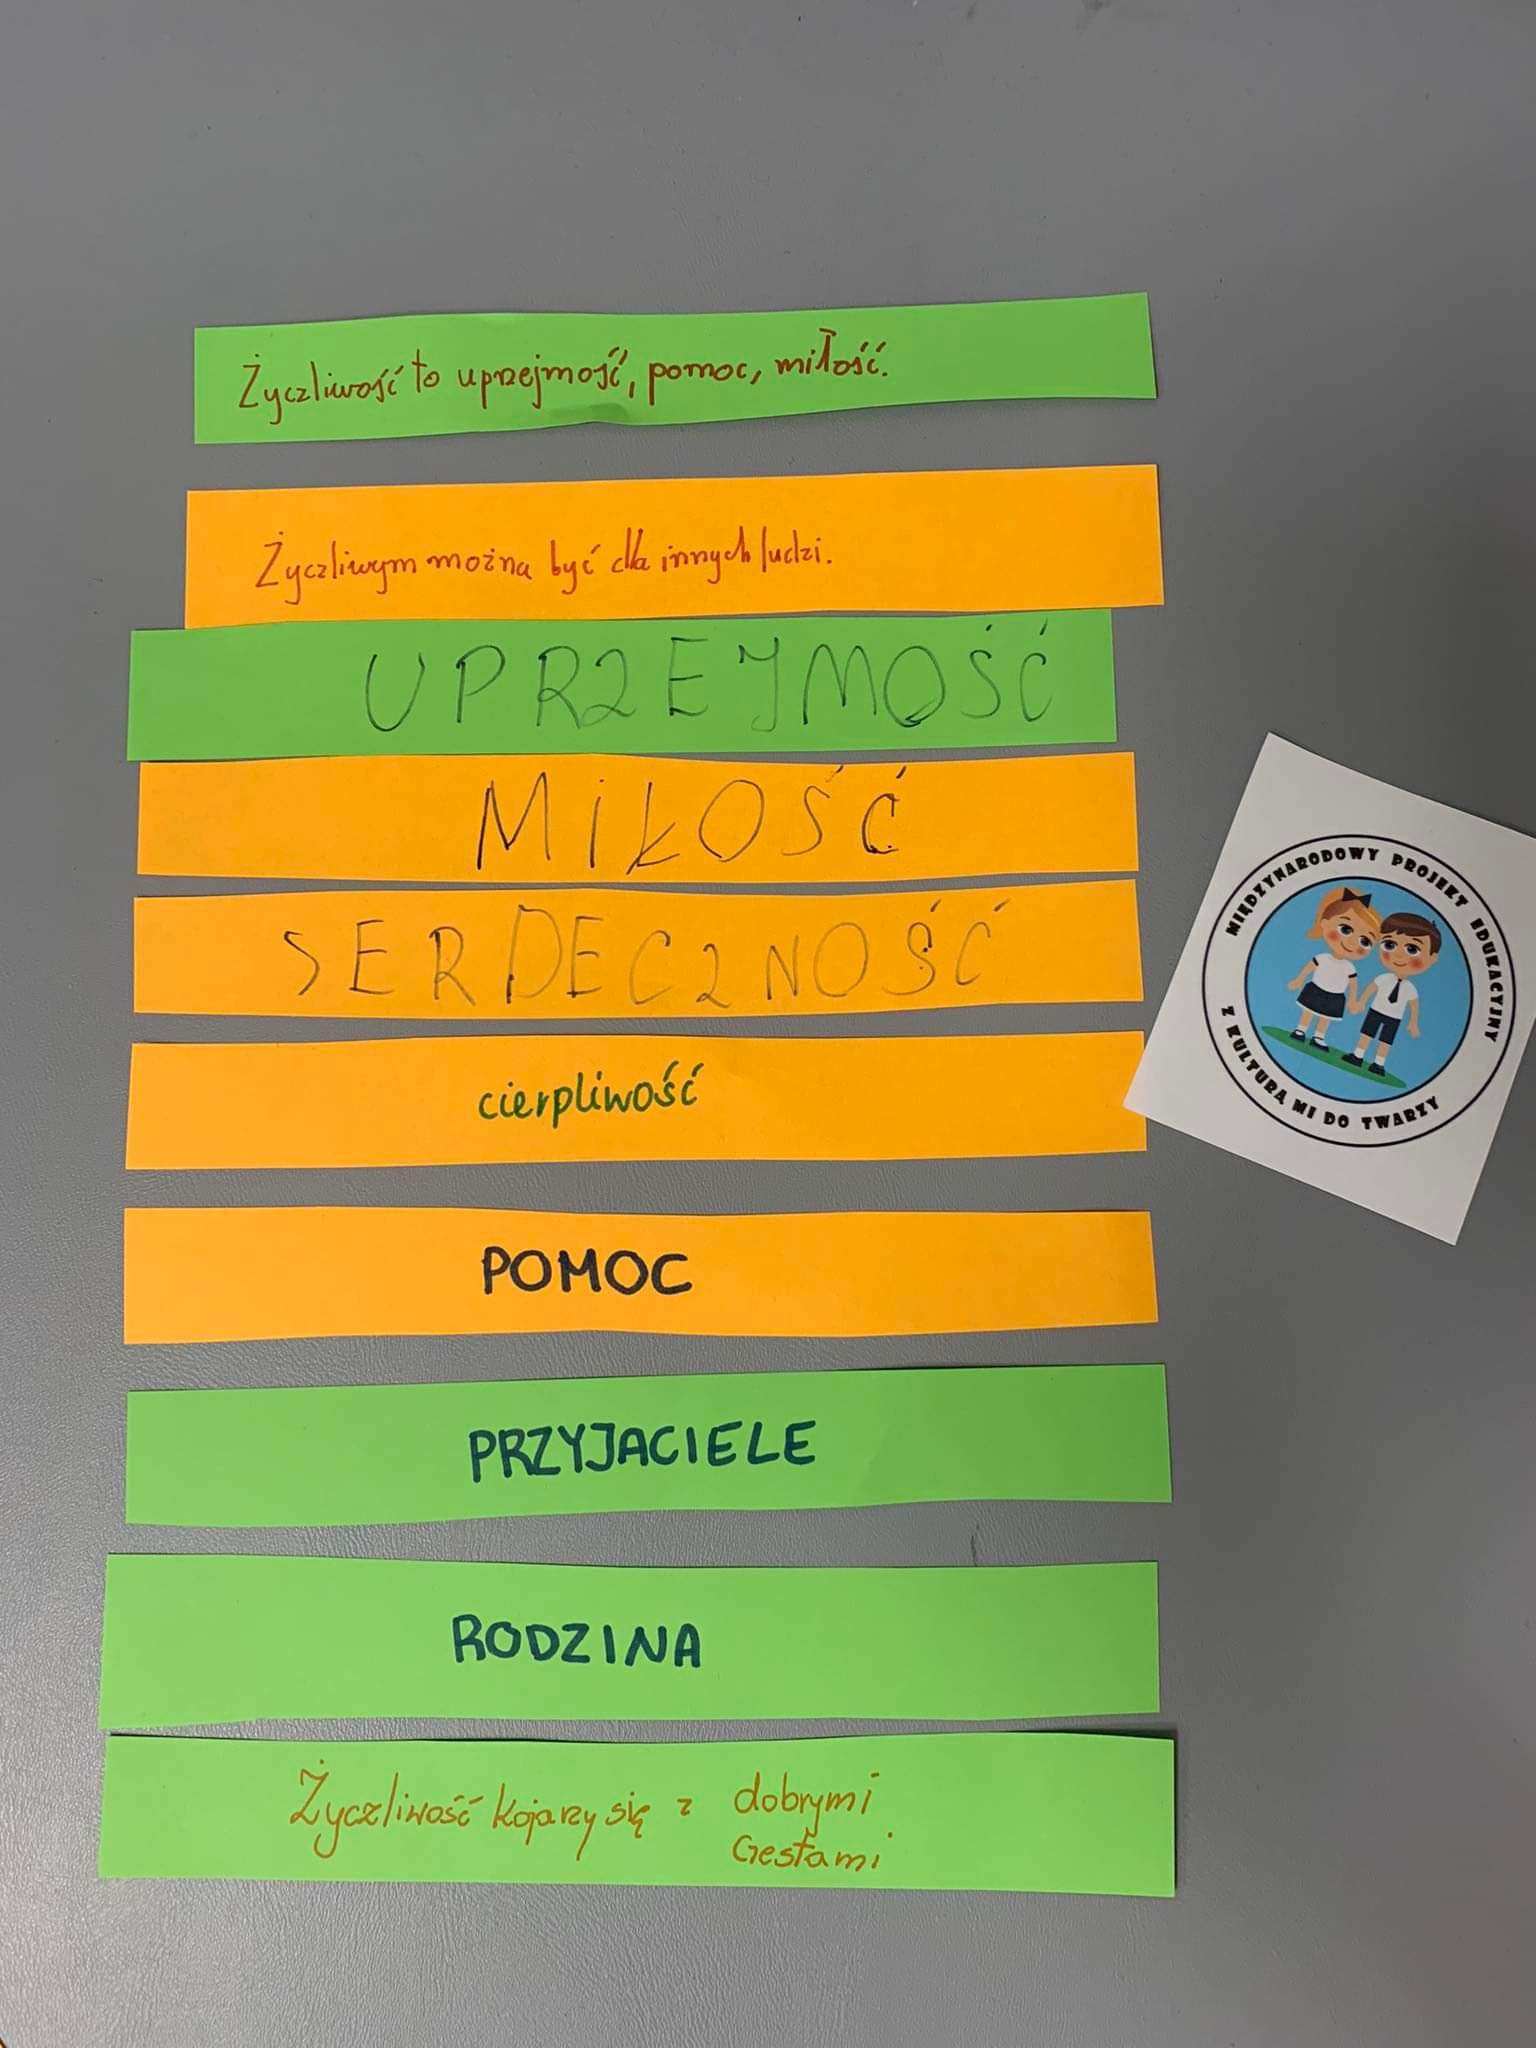 Życzliwość to uprzejmość, pomoc, miłość.
Życzliwym można być dla innych ludzi.
UPRZEJMOŚĆ
MiŁOŚĆ
SERDECZNOŚĆ
cierpliwość
POMOC
PRZYJACIELE
RODZINA
Życzliwość kojarzy się z dobrymi
Gestami
MIĘDZYNARODOWY PROJEKT EDUKACYJNY
Z KULTURĄ MI DO TWARZY